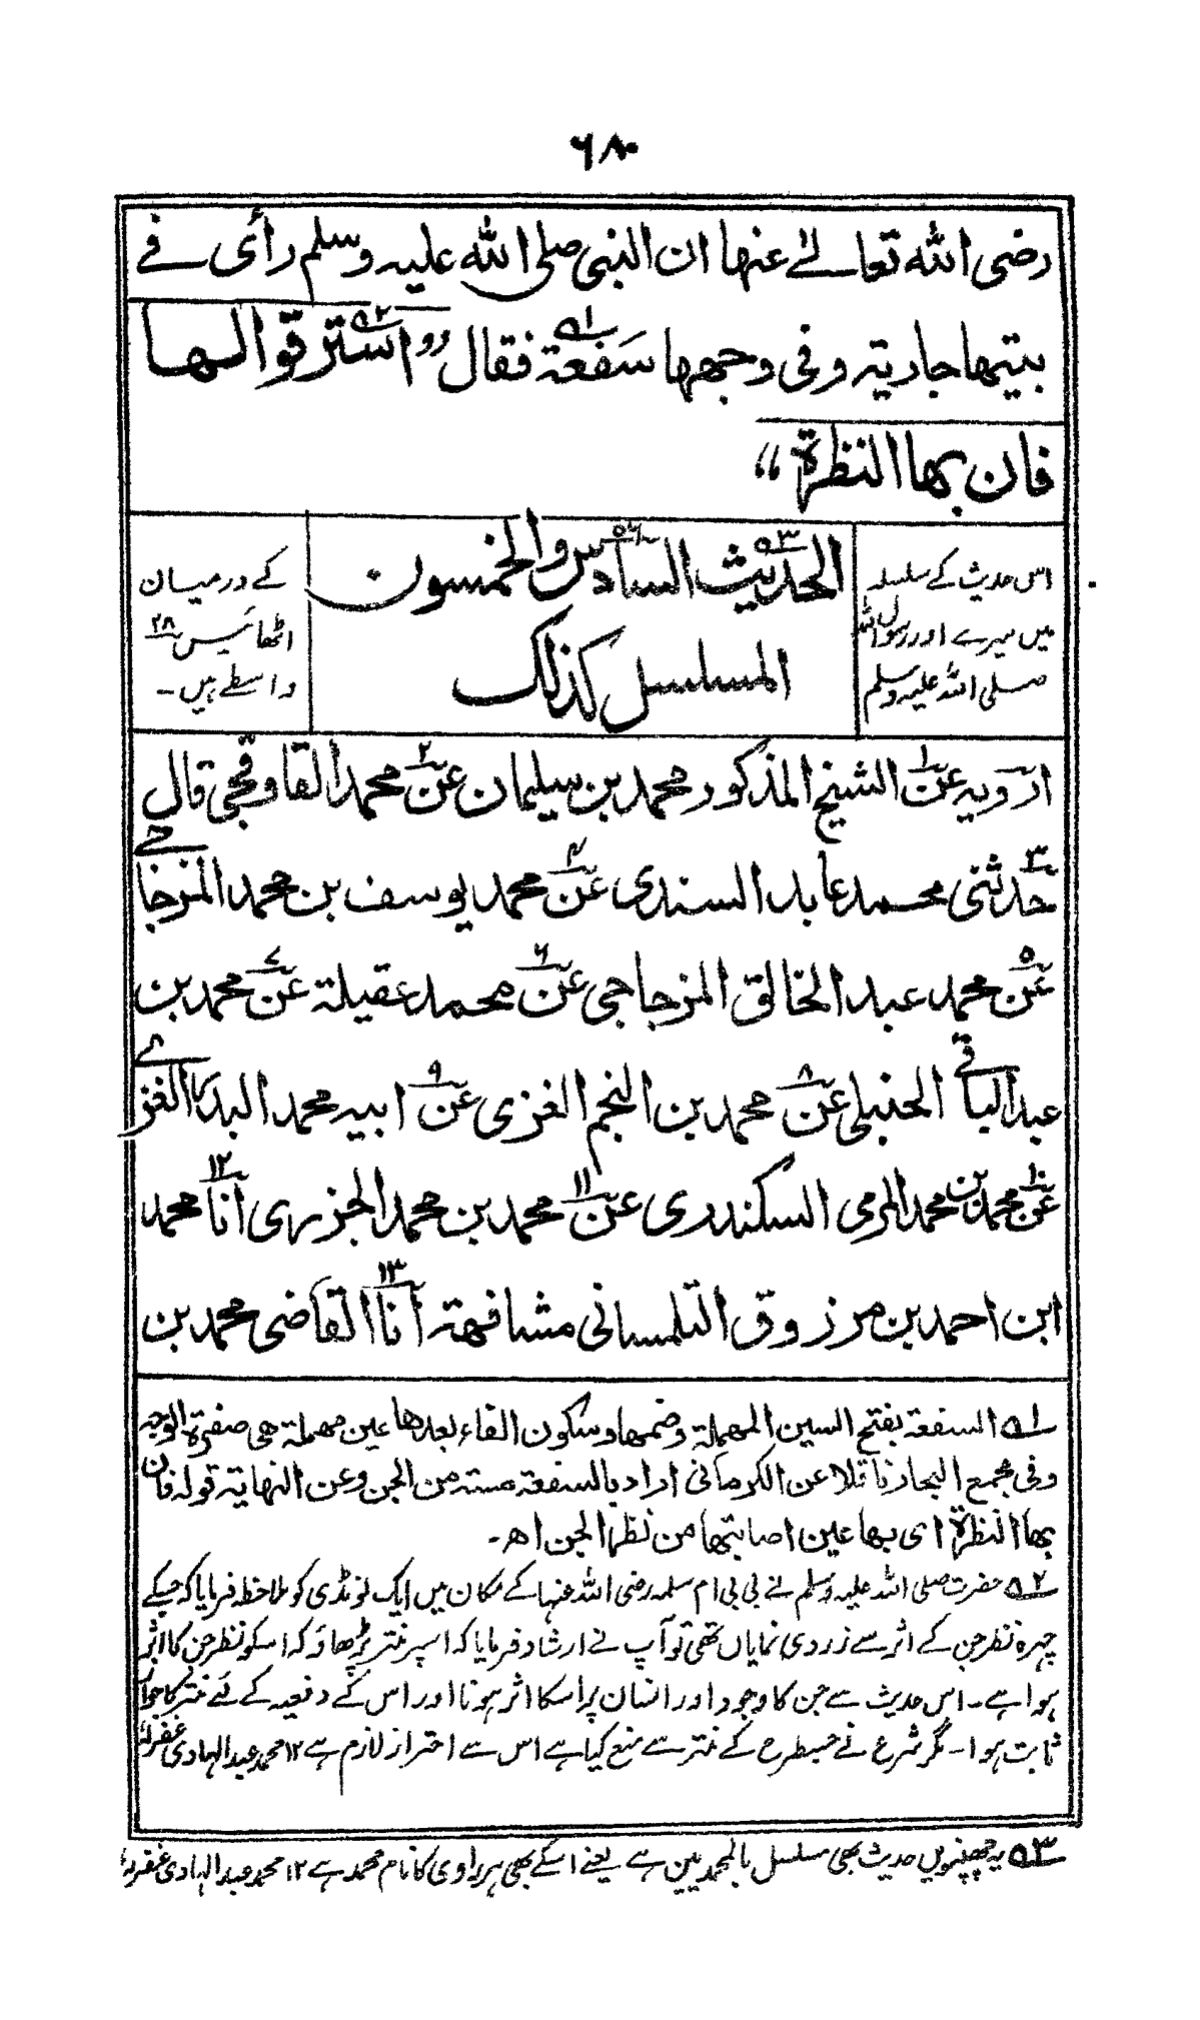 ۶۸۰
رضی الله تعالے عنها ان النبی صلی الله علیه وسلم رأی فے
بیتها جاریة وفی وجهها سَفعة فقال ,, استرقوا لها
فان بها النظرة ،،
الحدیث السادس والخمسون
المسلسل کذلک
اس حدیث کے سلسلہ
میں میرے اور رسول اللہ
صلی اللہ علیہ وسلم
کے درمیان
اٹھائیس ۲۸
واسطے ہیں۔
ارویه عن الشیخ المذکور محمد بن سلیمان عن محمد القاوقجی قال
حدثنی محمد عابد السندی عن محمد یوسف بن محمد المزجاجے
عن محمد عبد الخالق المزجاجی عن محمد عقیلة عن محمد بن
عبد الباقی الحنبلی عن محمد بن النجم الغزی عن ابیه محمد البدر الغزے
عن محمد بن محمد المزی السکندری عن محمد بن محمد الجزری انا محمد
ابن احمد بن مرزوق التلمسانی مشافهة انا القاضی محمد بن
۵۱ السفعة بفتح السین المهملة وضمها وسکون الفاء بعدها عین مهملة هی صفرة الوجه
وفی مجمع البحار ناقلا عن الکرمانی اراد بالسفعة مسة من الجن وعن النهایة قوله فان
بها النظرة ای بها عین اصابتها من نظر الجن اھ۔
۵۲ حضرت صلی اللہ علیہ وسلم نے بی بی ام سلمہ رضی اللہ عنہا کے مکان میں ایک لونڈی کو ملاحظہ فرمایا کہ جسکے
چہرہ نظر جن کے اثر سے زردی نمایاں تھی تو آپ نے ارشاد فرمایا کہ اسپر منتر پڑھاؤ کہ اسکو نظر جن کا اثر
ہوا ہے۔ اس حدیث سے جن کا وجود اور انسان پر اسکا اثر ہونا اور اس کے دفعیہ کے لئے منتر کا جواز
ثابت ہوا۔ مگر شرع نے جسطرح کے منتر سے منع کیا ہے اس سے احتراز لازم ہے ۱۲ محمد عبد الہادی غفرلہ
۵۳ یہ چھپنویں حدیث بھی مسلسل بالمحمدیین ہے یعنے اسکے بھی ہر راوی کا نام محمد ہے ۱۲ محمد عبد الہادی غفرلہ